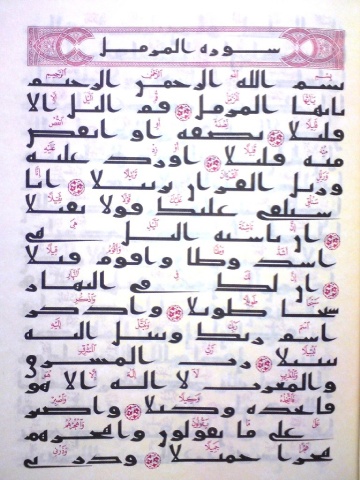 سورة المزمل
بسم الله الرحمن الرحيم
يايها المزمل قم اليل الا
قليلا نصفه او انقص
منه قليلا او زد عليه
ورتل القران ترتيلا انا
سنلقي عليك قولا ثقيلا
ان ناشئة اليل هي
اشد وطا واقوم قيلا
ان لك في النهار
سبحا طويلا واذكر
اسم ربك وتبتل اليه
تبتيلا رب المشرق
والمغرب لا اله الا هو
فاتخذه وكيلا واصبر
على ما يقولون واهجرهم
هجرا جميلا وذرني